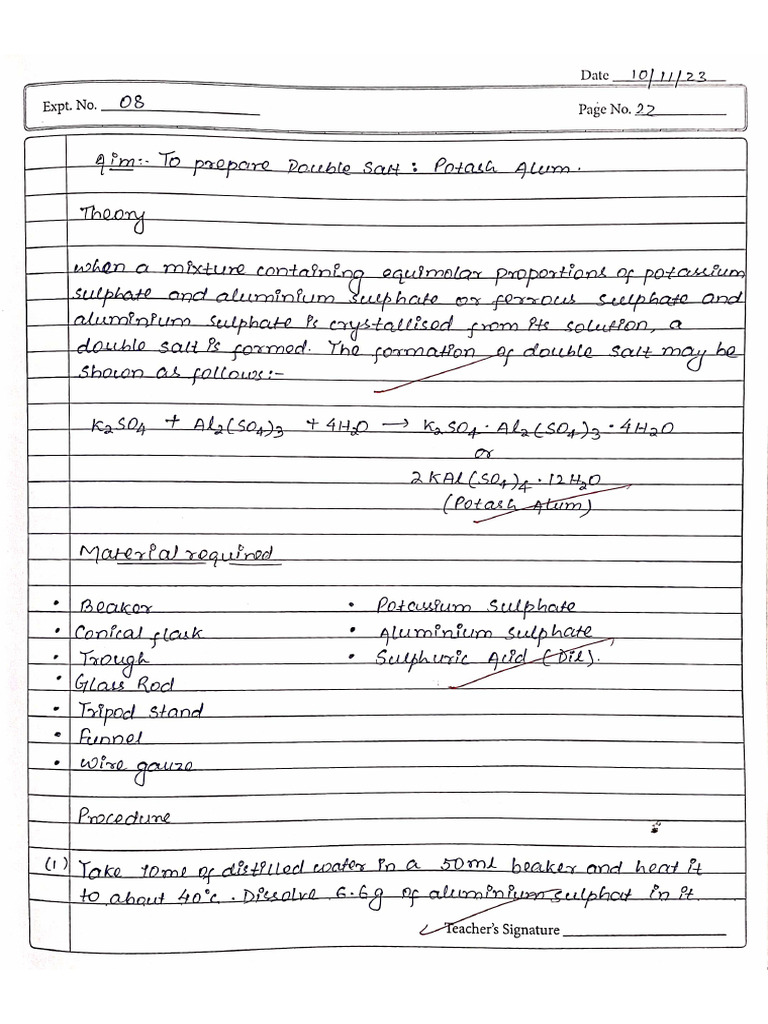 Date 10/11/23
Expt. No. 08
Page No. 22
Aim:- To prepare Double Salt : Potash Alum.
Theory
When a mixture containing equimolar proportions of potassium
sulphate and aluminium sulphate or ferrous sulphate and
aluminium sulphate is crystallised from its solution, a
double salt is formed. The formation of double salt may be
shown as follows:-
K2SO4 + Al2(SO4)3 + 4H2O → K2SO4 · Al2(SO4)3 · 4H2O
or
2KAl(SO4)4 · 12H2O
(Potash Alum)
Material required
• Beaker • Potassium Sulphate
• Conical flask • Aluminium sulphate
• Trough • Sulphuric Acid (Dil).
• Glass Rod
• Tripod stand
• Funnel
• Wire gauze
Procedure
(1) Take 10ml of distilled water in a 50ml beaker and heat it
to about 40°c. Dissolve 6.6g of aluminium sulphat in it.
Teacher's Signature